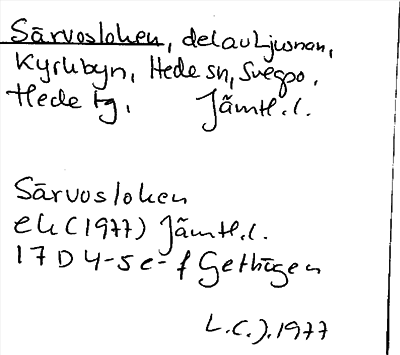 Särvosloken, del av Ljusnan,
Kyrkbyn, Hede sn, Svegpo,
Hede tg, Jämtl. l.
Särvosloken
ek (1977) Jämtl. l.
17 D 4-5 e-f Gethögen
L.C.J. 1977